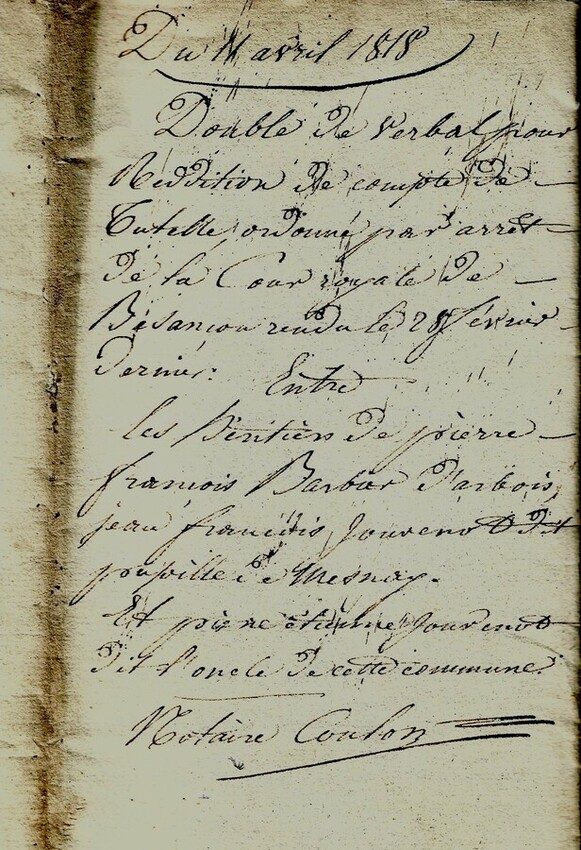 Du 11 avril 1818
Double de verbal pour
Reddition de compte de
Tutelle ordonné par arrêt
de la Cour royale de
Besançon rendu le 28 février
dernier. Entre
les héritiers de pierre
françois Barbar d'arbois,
jean françois Jouvenot dit
pupille de Mesnay.
Et pierre étienne Jouvenot
dit l'oncle de cette commune.
Notaire Coulon